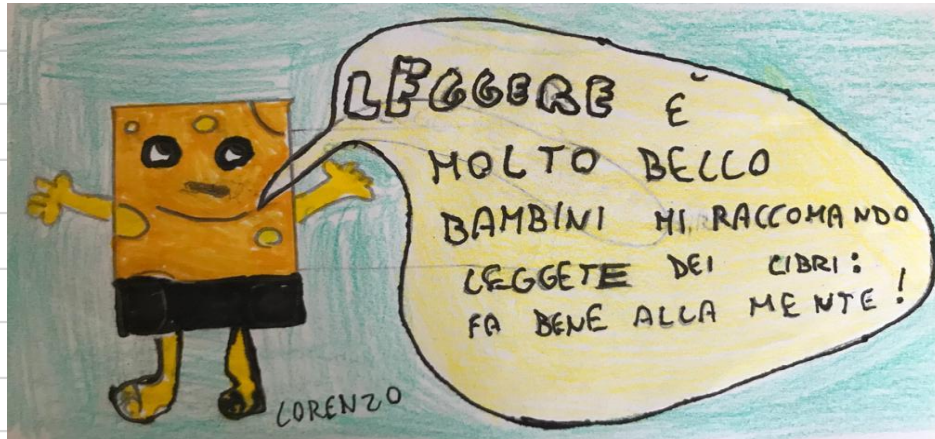 LEGGERE È
MOLTO BELLO
BAMBINI MI RACCOMANDO
LEGGETE DEI LIBRI:
FA BENE ALLA MENTE!
LORENZO